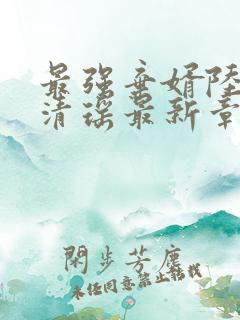 最强弃婿陆
清瑶最新章
閑步芳塵
未经同意禁止转载